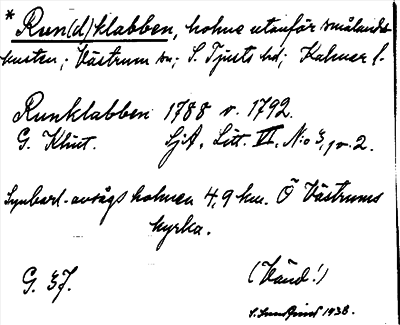 * Run(d)klabben, holme utanför smålands-
kusten; Västrum sn; S. Tjusts hd; Kalmar l.
Runklabben 1788 v. 1792.
G. Klint. SjA, Litt. VI, N:o 3, v. 2.
avsågs holmen 4,9 km. Ö Västrums
kyrka.
G. 37. (Vänd!)
1938.